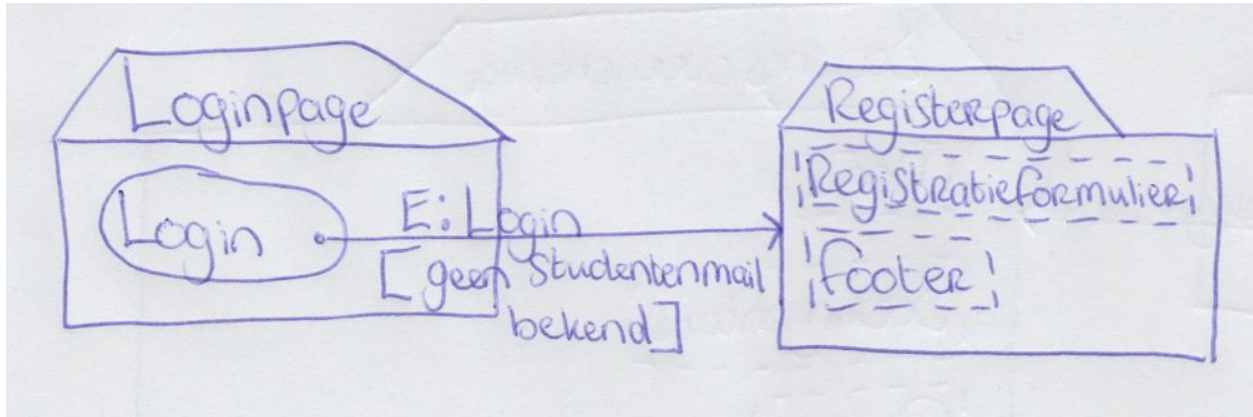 Loginpage
Login
E: Login
[geen Studentenmail
bekend]
Registerpage
Registratieformulier
footer